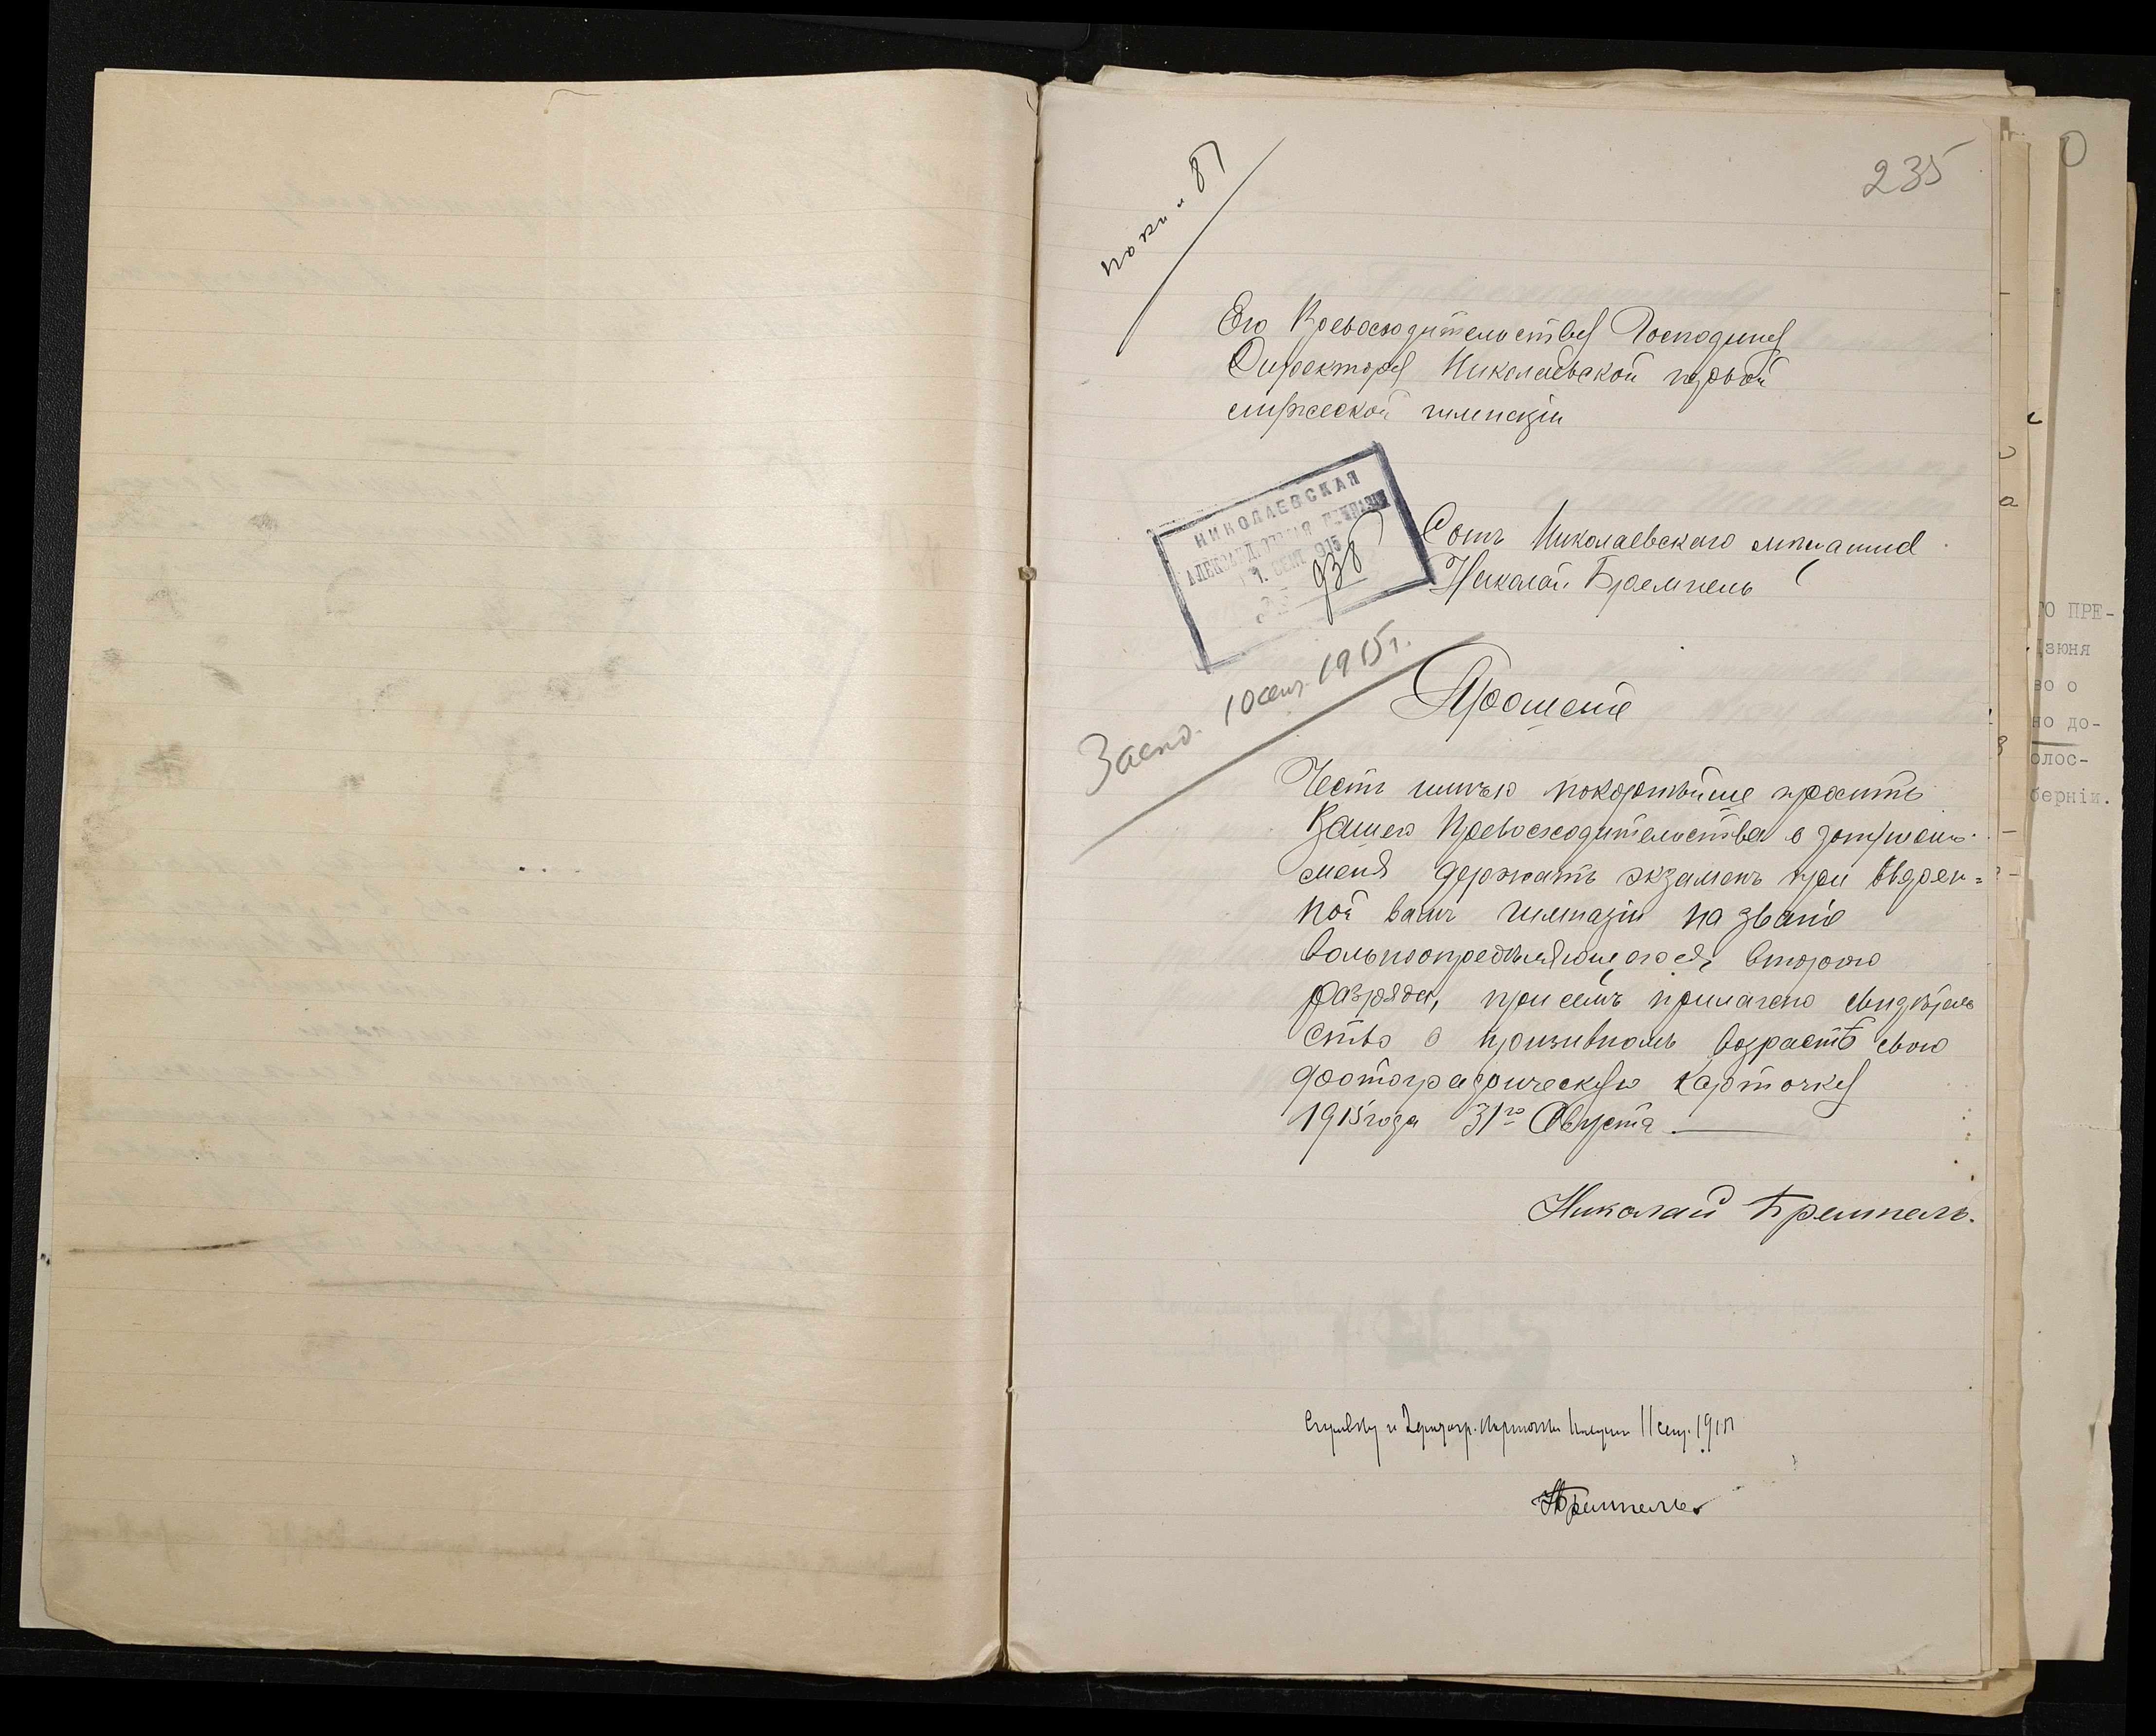 235
Его Превосходительству Господину
Директору Николаевской первой
мужеской гимназіи
НИКОЛАЕВСКАЯ
АЛЕКСАНД. ГИМНАЗІЯ
1. СЕНТ 915
938
Сынъ Николаевского мѣщанина
Николай Бремпель
Заслд. 10 сент. 1915 г.
Прошеніе
Честь имѣю покорнѣйше просить
Вашего Превосходительства о
меня держать экзаменъ при ввѣрен=
ной вамъ гимназіи на званіе
вольноопредѣляющагося второго
разряда, при семъ прилагаю свидѣтель
ство о призывномъ возрастѣ свою
фотографическую карточку
1915 года 31го Августа.
Николай Бремпель.
карточку 11 сент. 1915
НБремпель
ГО ПРЕ-
ДЗЮНЯ
во о
но до-
олос-
берніи.